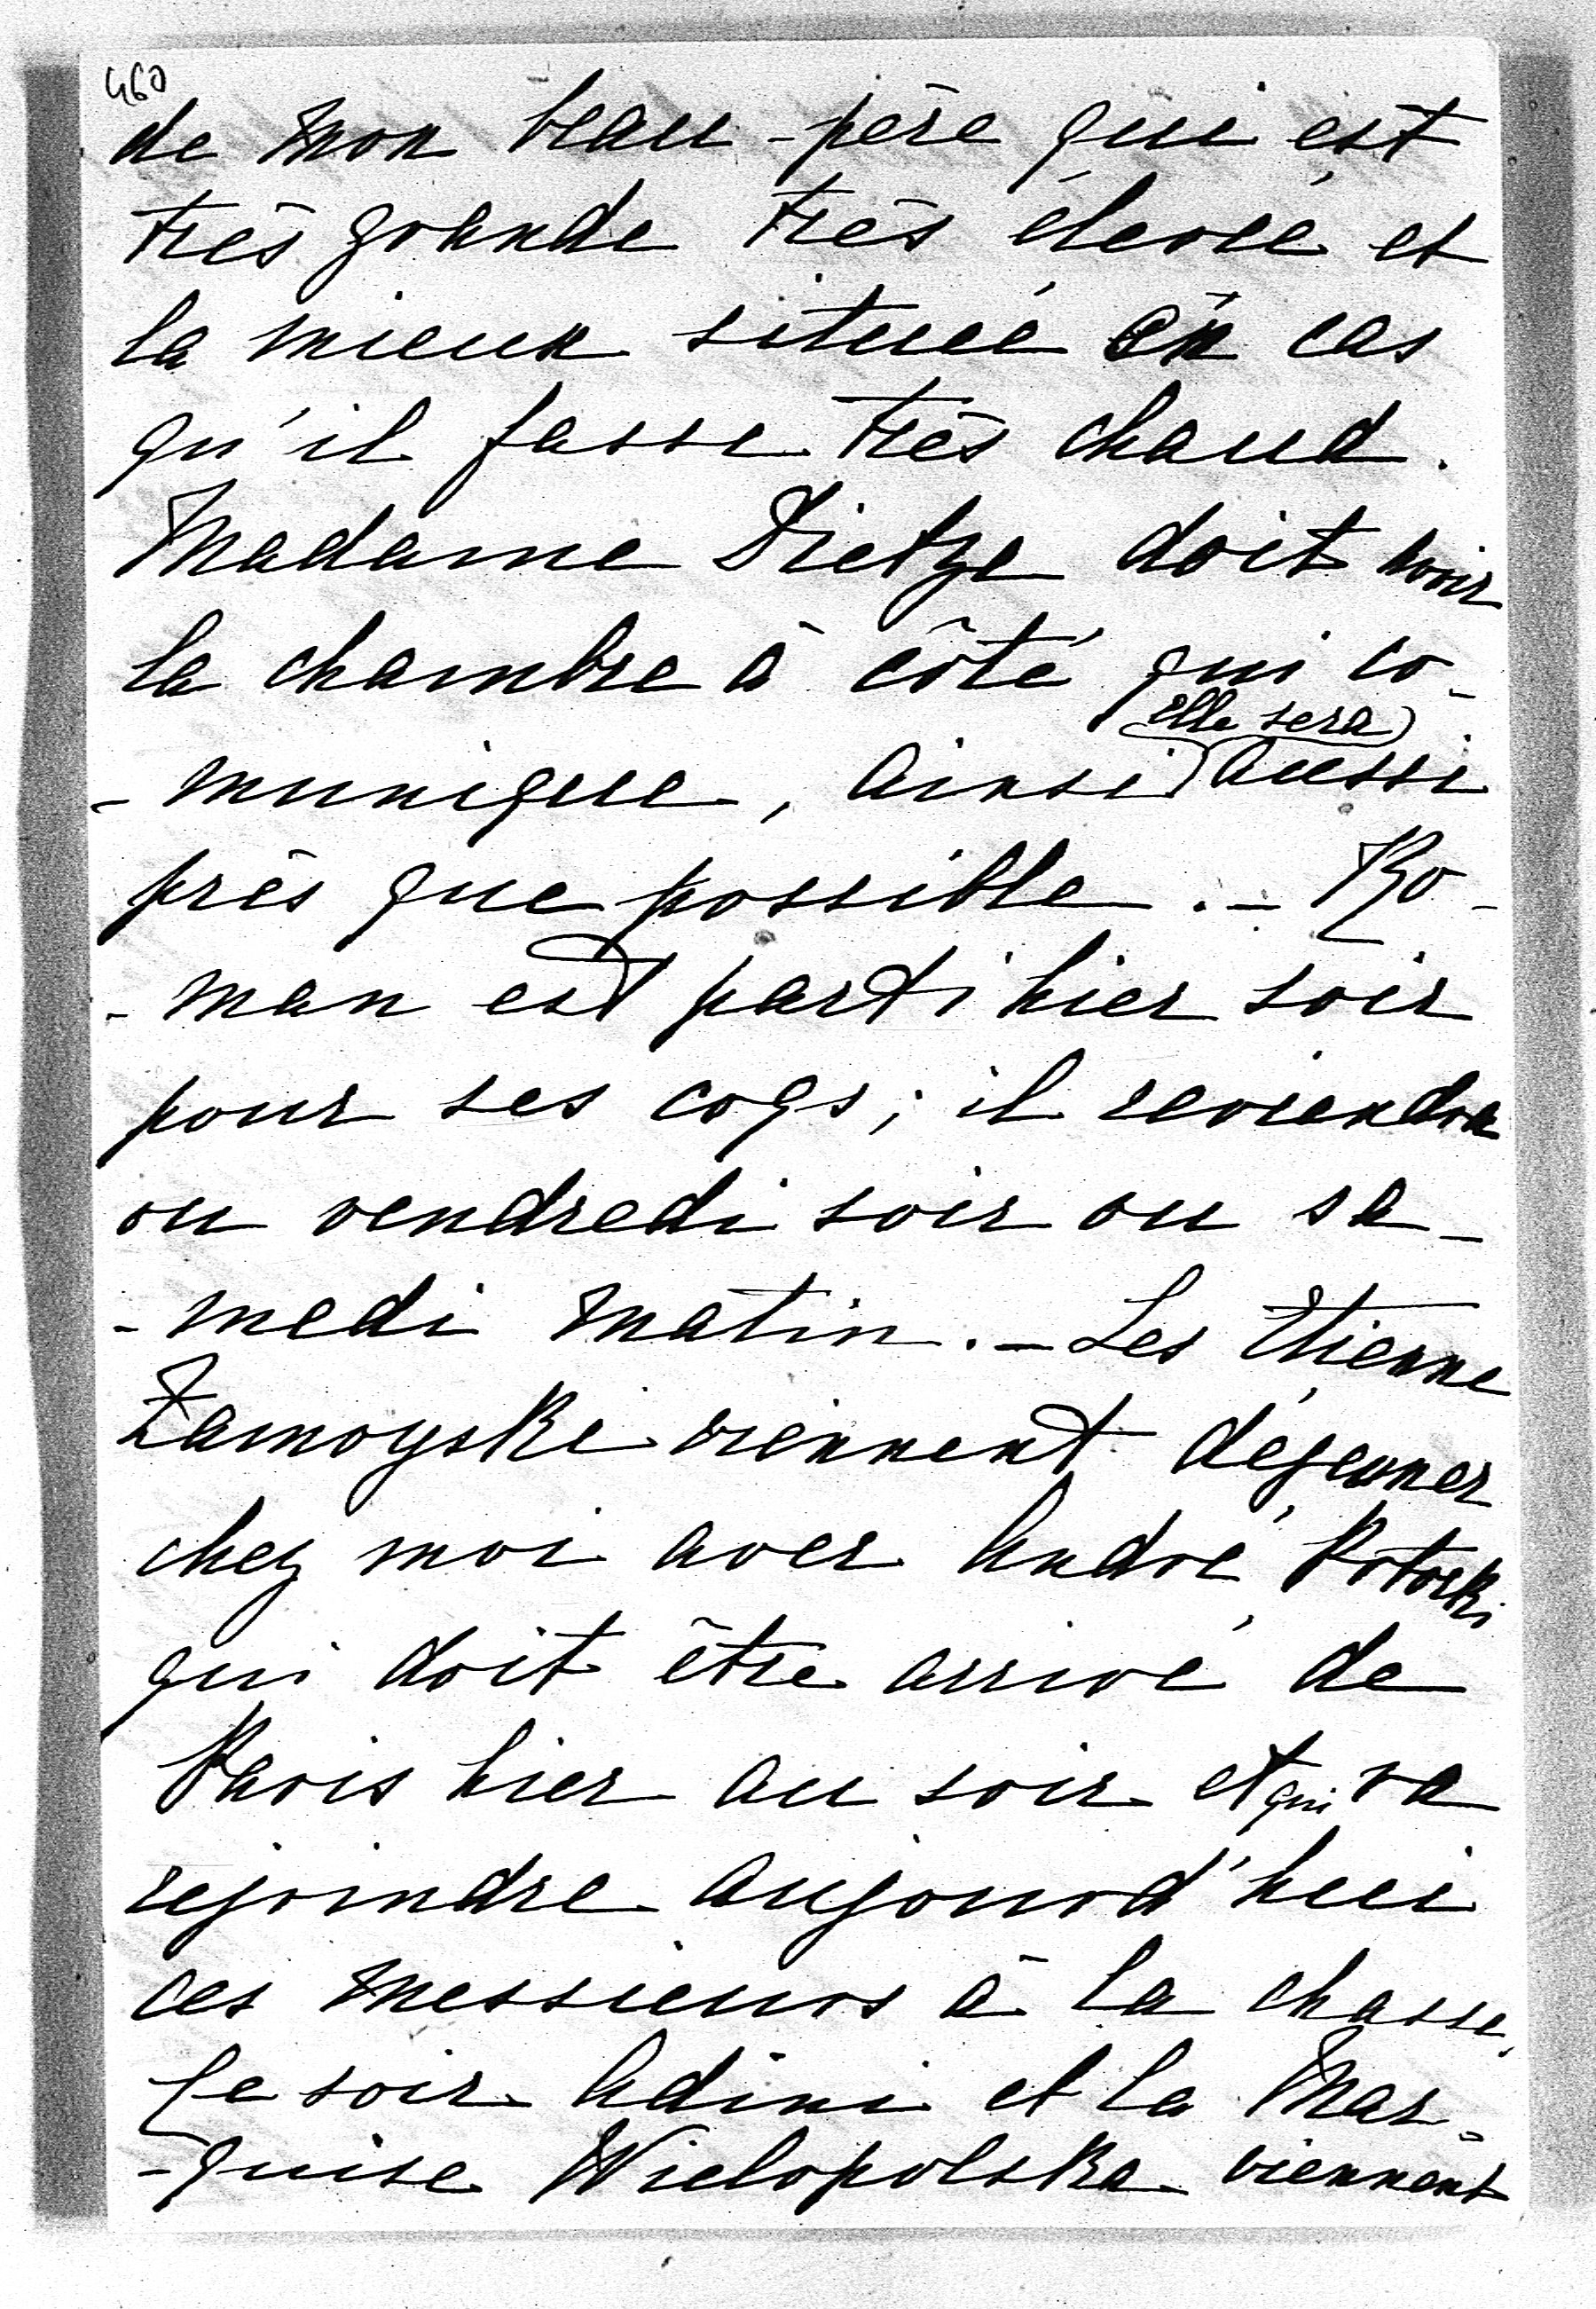 460
de mon beau-père qui est
très grande très élevée et
la mieux située en cas
qu'il fasse très chaud.
Madame Dietze doit avoir
la chambre à côté qui co-
elle sera
-munique, ainsi aussi
près que possible. - Ro-
-man est parti hier soir
pour ses coqs; il reviendra
ou vendredi soir ou sa-
-medi matin. - Les Etienne
Zamoyski viennent déjeuner
chez moi avec André Potocki
qui doit être arrivé de
Paris hier au soir et qui va
rejoindre aujourd'hui
ces messieurs à la chasse.
Ce soir Adini et la Mar-
-quise Wielopolska viennent